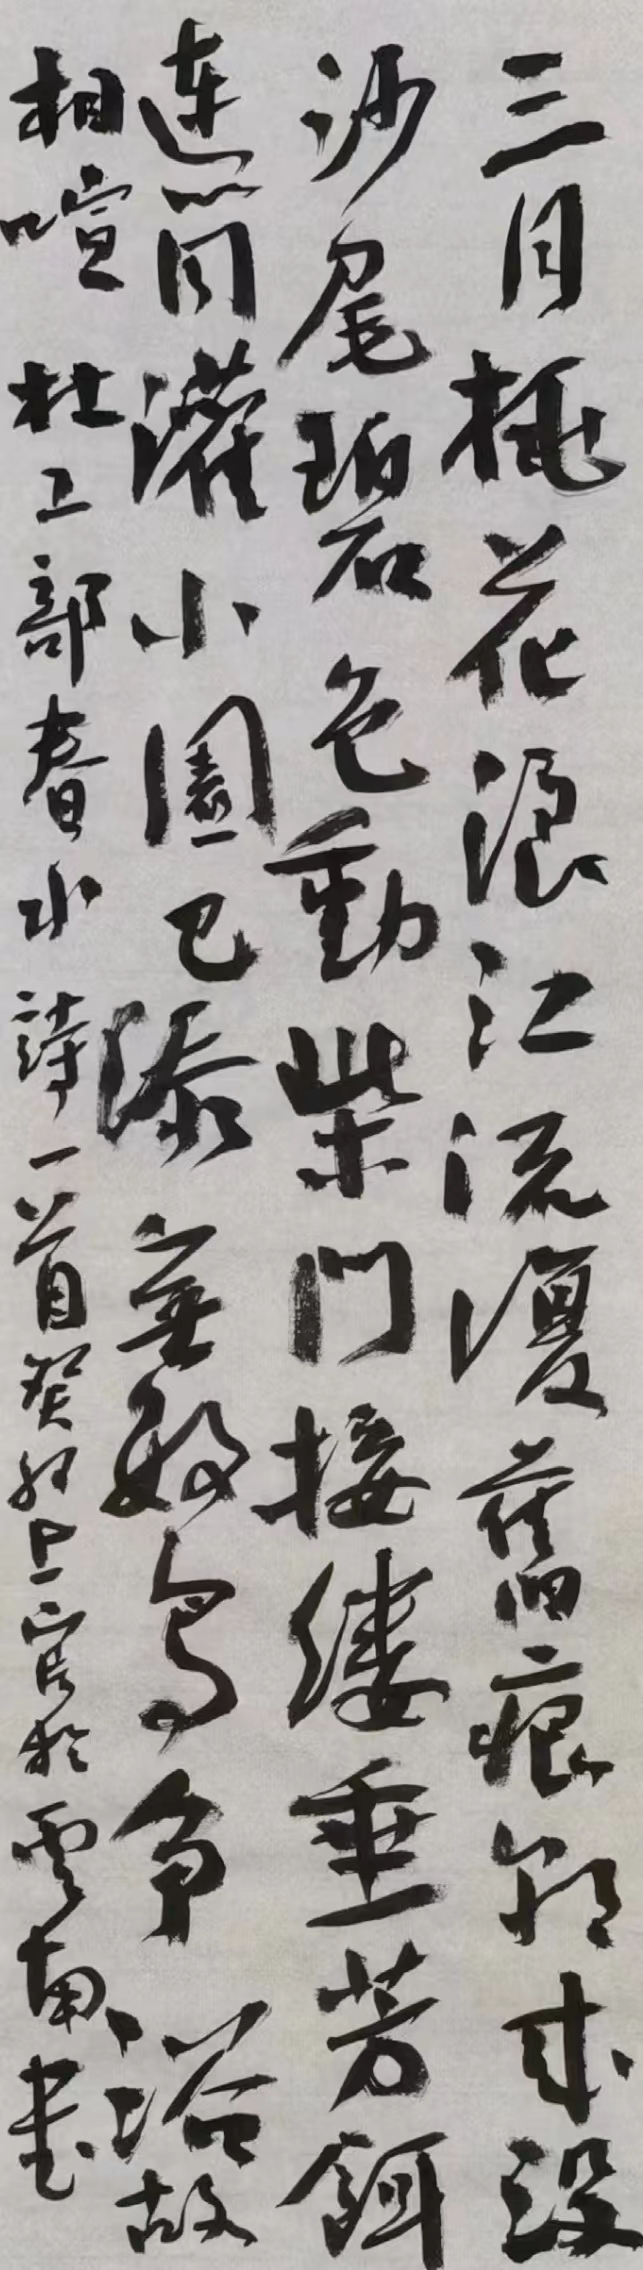 三月桃花浪江流復舊痕朝来没
沙尾碧色動柴門接縷垂芳餌
連筒灌小園已添無數鳥争浴故
相喧 杜工部春水詩一首癸卯上官於雲南書